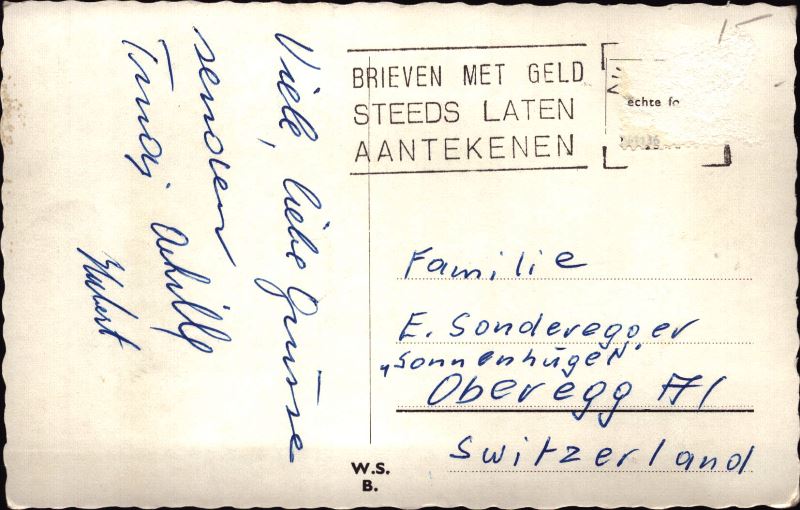 Viele, liebe Grüsse
senden
Trudi, Achille
Hubert
BRIEVEN MET GELD
STEEDS LATEN
AANTEKENEN
echte fo
Familie
E. Sonderegger
"Sonnenhügel"
Oberegg A/
Switzerland
W.S.
B.